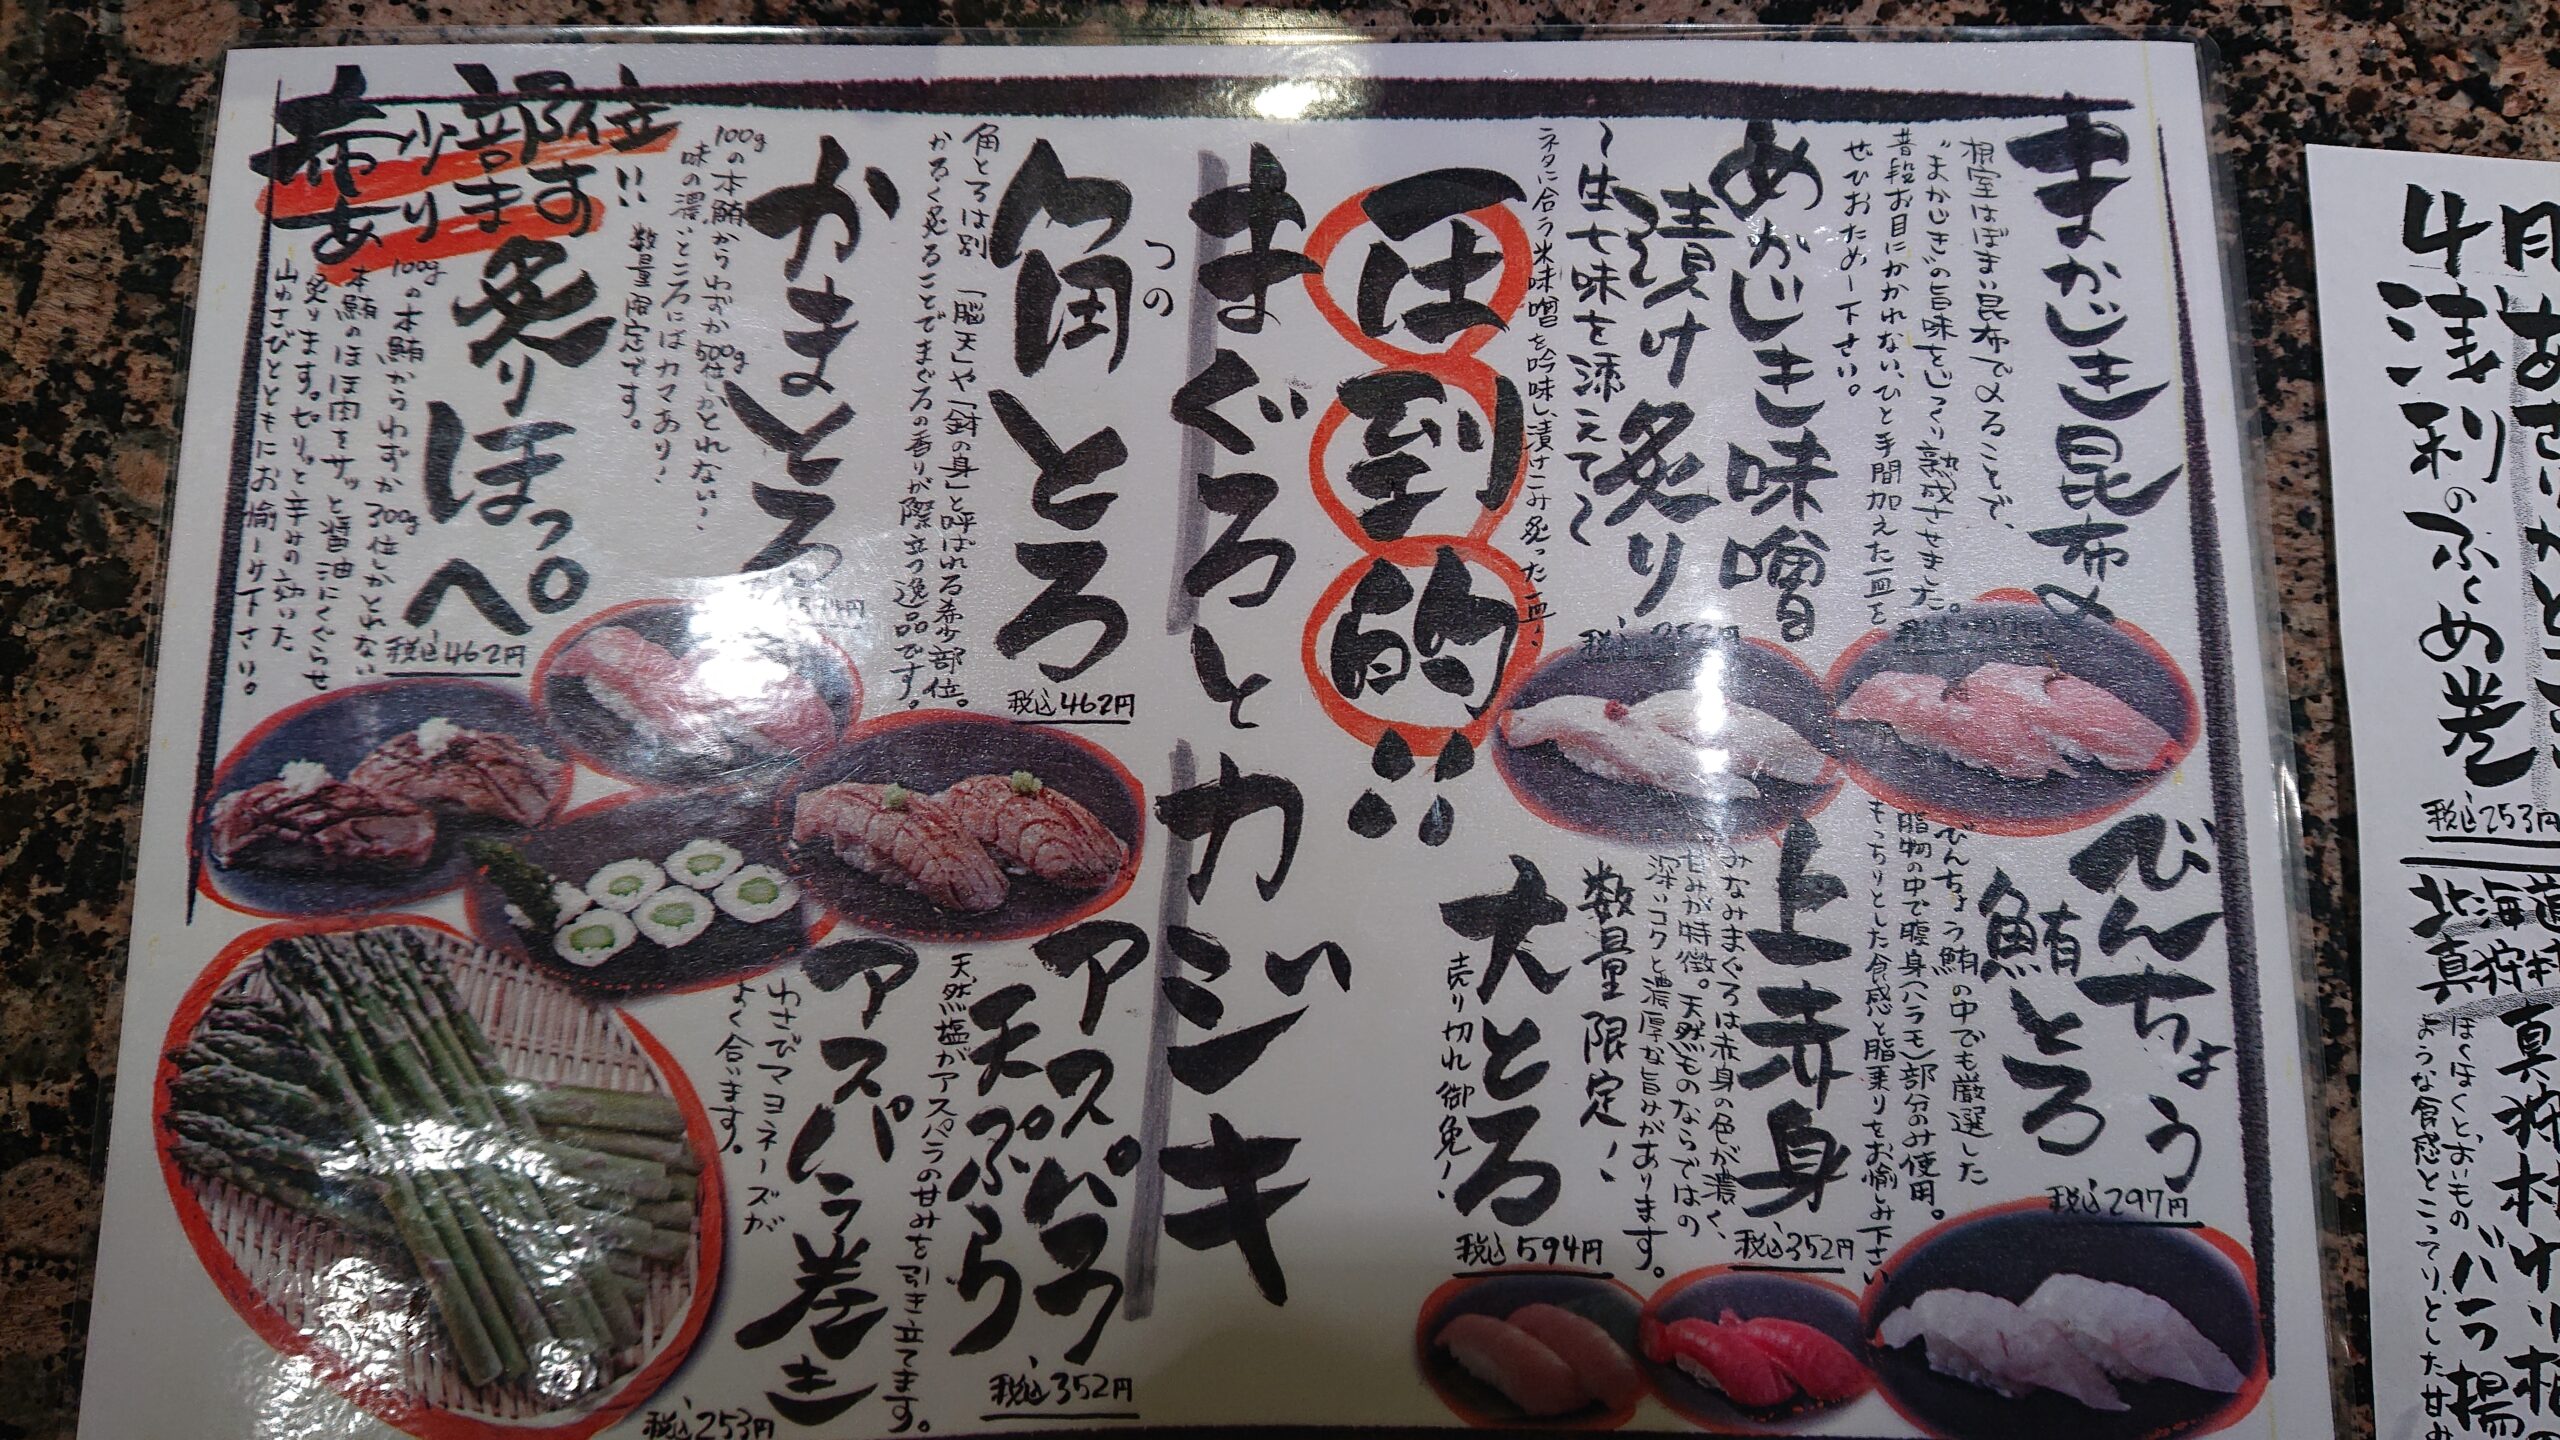 まかじき昆布〆
根室はぼまい昆布で〆ることで、
"まかじき"の旨味をじっくり熟成させました。
普段お目にかかれない、ひと手間加えた一皿を
ぜひおためし下さい。
めかじき味噌
漬け炙り
〜生七味を添えて〜
ネタに合う米味噌を吟味し、漬けこみ炙った一皿!
びんちょう
鮪とろ
税込297円
びんちょう鮪の中でも厳選した
脂物の中で腹身(ハラモ)部分のみ使用。
もっちりとした食感と脂乗りをお愉しみ下さい
上赤身
税込352円
みなみまぐろは赤身の色が濃く、
甘みが特徴。天然ものならではの
深いコクと濃厚な旨みがあります。
数量限定!
大とろ
税込594円
売り切れ御免!
圧到的!!
まぐろとカジキ
角とろ
つの
税込462円
角とろは別「脳天」や「鉢の身」と呼ばれる希少部位。
かるく炙ることでまぐろの香りが際立つ逸品です。
かまとろ
100gの本鮪からわずか500g位しかとれない!
味の濃いところにはカマあり!
数量限定です。
希少部位!!
あります
炙りほっぺ
税込462円
100gの本鮪からわずか300g位しかとれない
本鮪のほほ肉をサッと醤油にくぐらせ
炙ります。ピリッと辛みの効いた
山わさびとともにお愉しみ下さい。
アスパラ
天ぷら
税込352円
天然塩がアスパラの甘みを引き立てます。
アスパラ巻き
税込253円
わさびマヨネーズが
よく合います。
4月
浅利のふくめ巻
税込253円
北海道
真狩村
真狩村
バラ揚
ほくほくと、おいもの
ような食感とこってりとした甘み